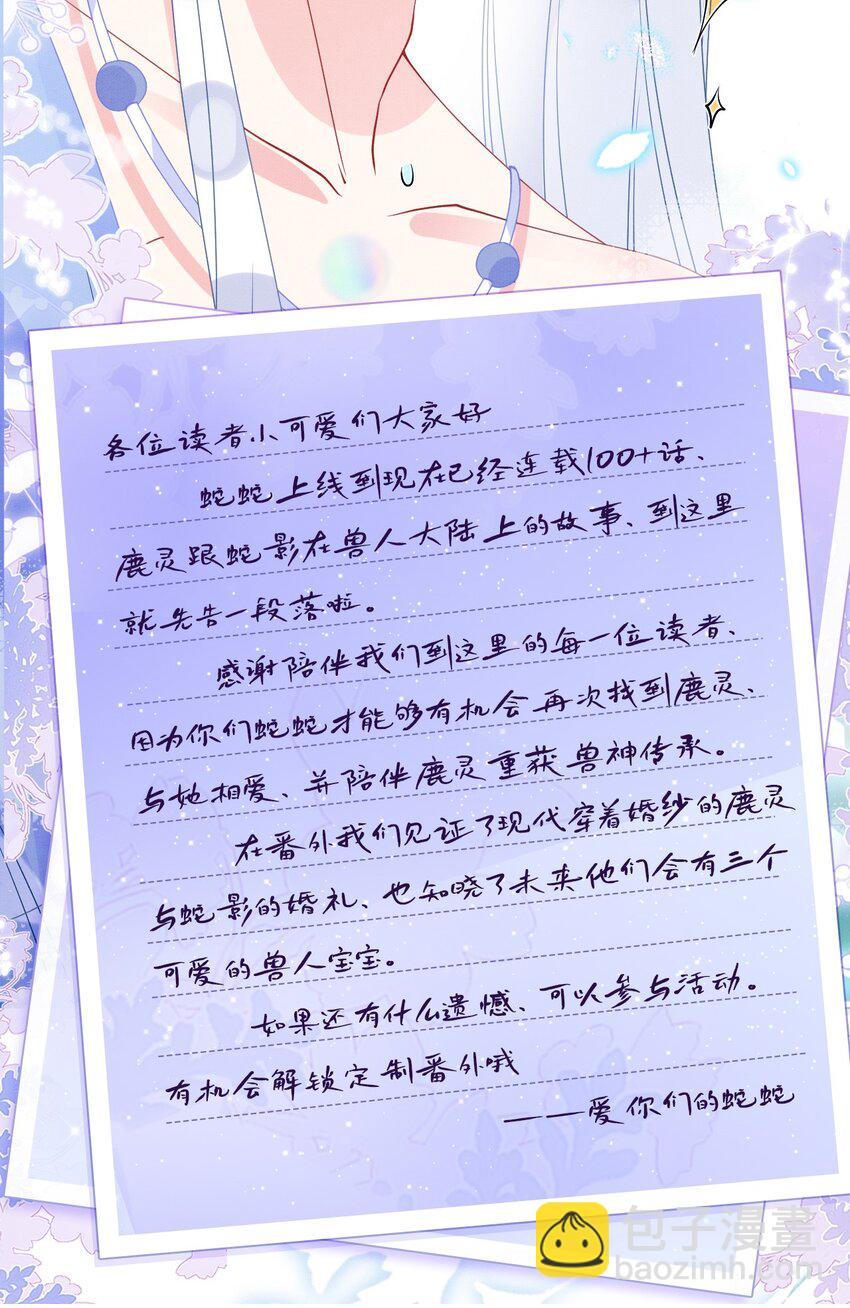 各位读者小可爱们大家好
蛇蛇上线到现在已经连载100+话、
鹿灵跟蛇影在兽人大陆上的故事、到这里
就先告一段落啦。
感谢陪伴我们到这里的每一位读者、
因为你们蛇蛇才能够有机会再次找到鹿灵、
与她相爱、并陪伴鹿灵重获兽神传承。
在番外我们见证了现代穿着婚纱的鹿灵
与蛇影的婚礼、也知晓了未来他们会有三个
可爱的兽人宝宝。
如果还有什么遗憾、可以参与活动。
有机会解锁定制番外哦
——爱你们的蛇蛇
包子漫畫
baozimh.com